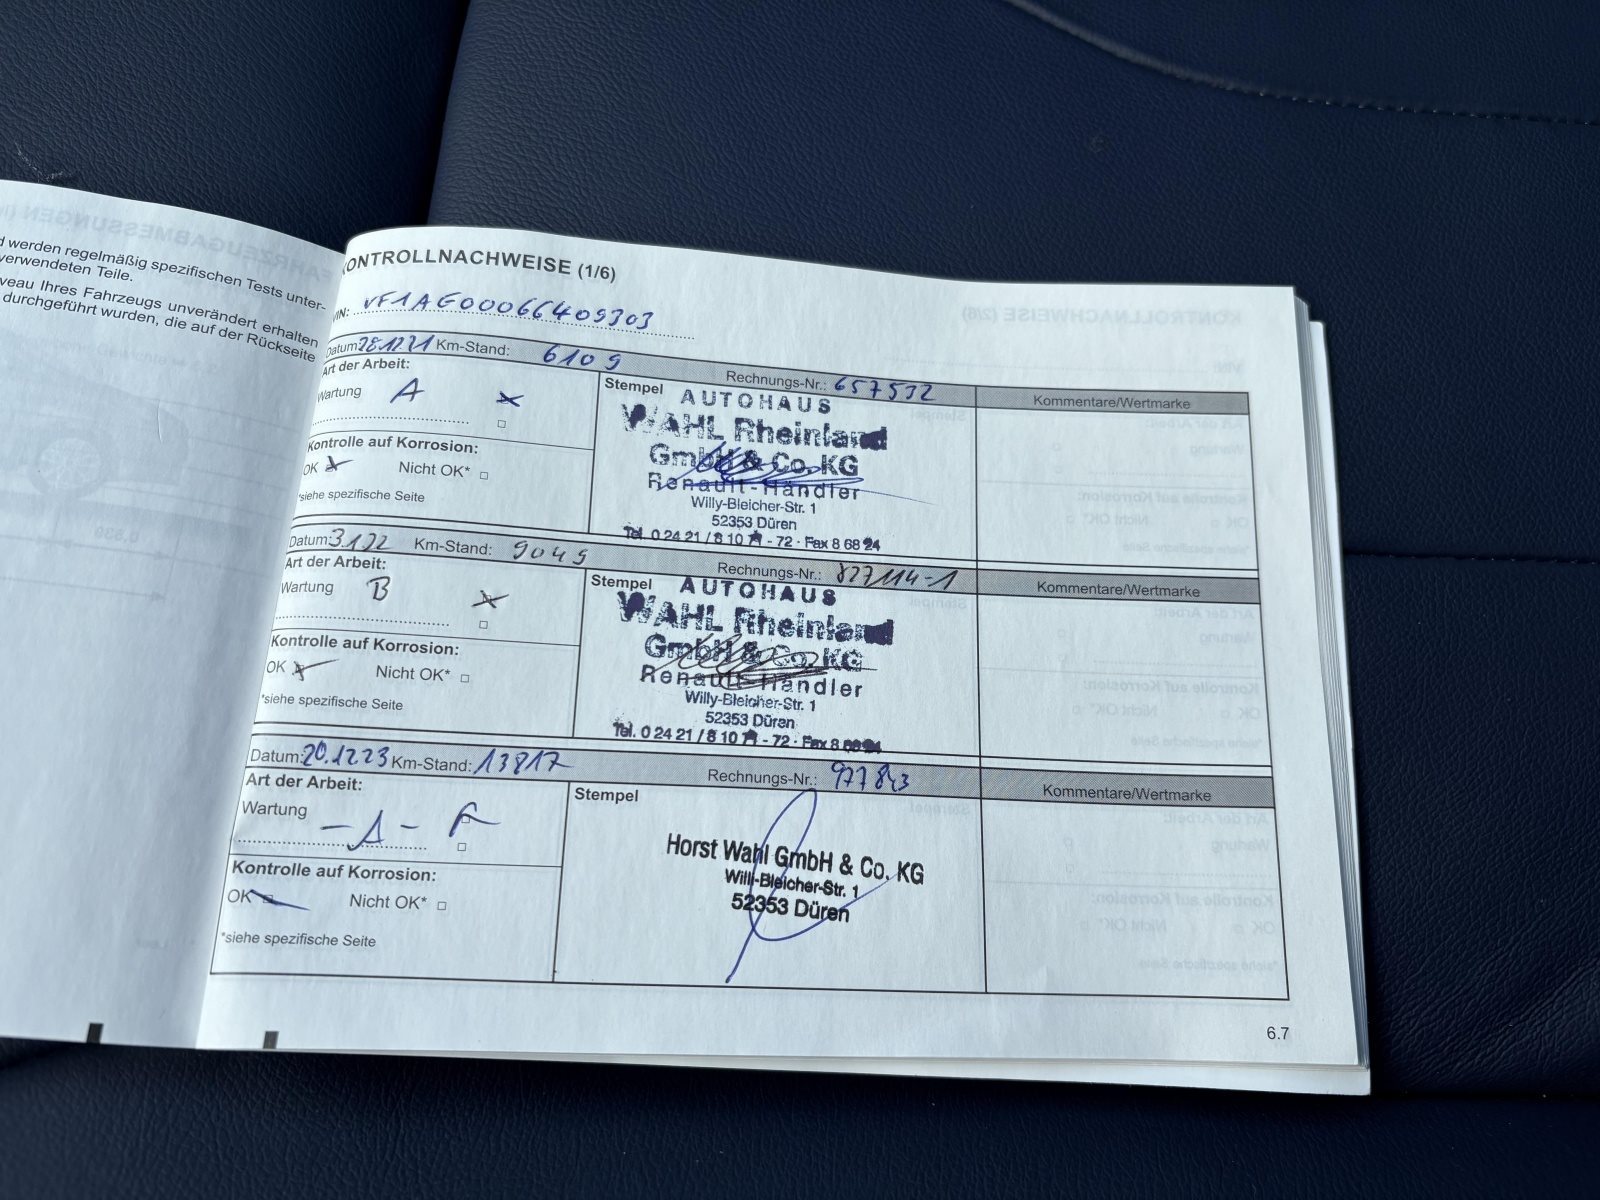 d werden regelmäßig spezifischen Tests unter-
verwendeten Teile.
veau Ihres Fahrzeugs unverändert erhalten
durchgeführt wurden, die auf der Rückseite
KONTROLLNACHWEISE (1/6)
VIN: VF1AG00066409303
Datum: 28.12.21 Km-Stand: 6109 Rechnungs-Nr.: 657532 Kommentare/Wertmarke
Art der Arbeit:
Wartung A
Kontrolle auf Korrosion:
OK Nicht OK*
*siehe spezifische Seite
Stempel
AUTOHAUS
WAHL Rheinland
GmbH & Co. KG
Renault-Händler
Willy-Bleicher-Str. 1
52353 Düren
Tel. 0 24 21 / 8 10 - 72 · Fax 8 68 24
Datum: Km-Stand: 9049 Rechnungs-Nr.: 827114-1 Kommentare/Wertmarke
Art der Arbeit:
Wartung B
Kontrolle auf Korrosion:
OK Nicht OK*
*siehe spezifische Seite
Stempel
AUTOHAUS
WAHL Rheinland
GmbH & Co. KG
Renault-Händler
Willy-Bleicher-Str. 1
52353 Düren
Tel. 0 24 21 / 8 10 - 72 · Fax 8
Datum: 20.12.23 Km-Stand: 13817 Rechnungs-Nr.: 977843 Kommentare/Wertmarke
Art der Arbeit:
Wartung
- A -
Kontrolle auf Korrosion:
OK Nicht OK*
*siehe spezifische Seite
Stempel
Horst Wahl GmbH & Co. KG
Willi-Bleicher-Str. 1
52353 Düren
6.7